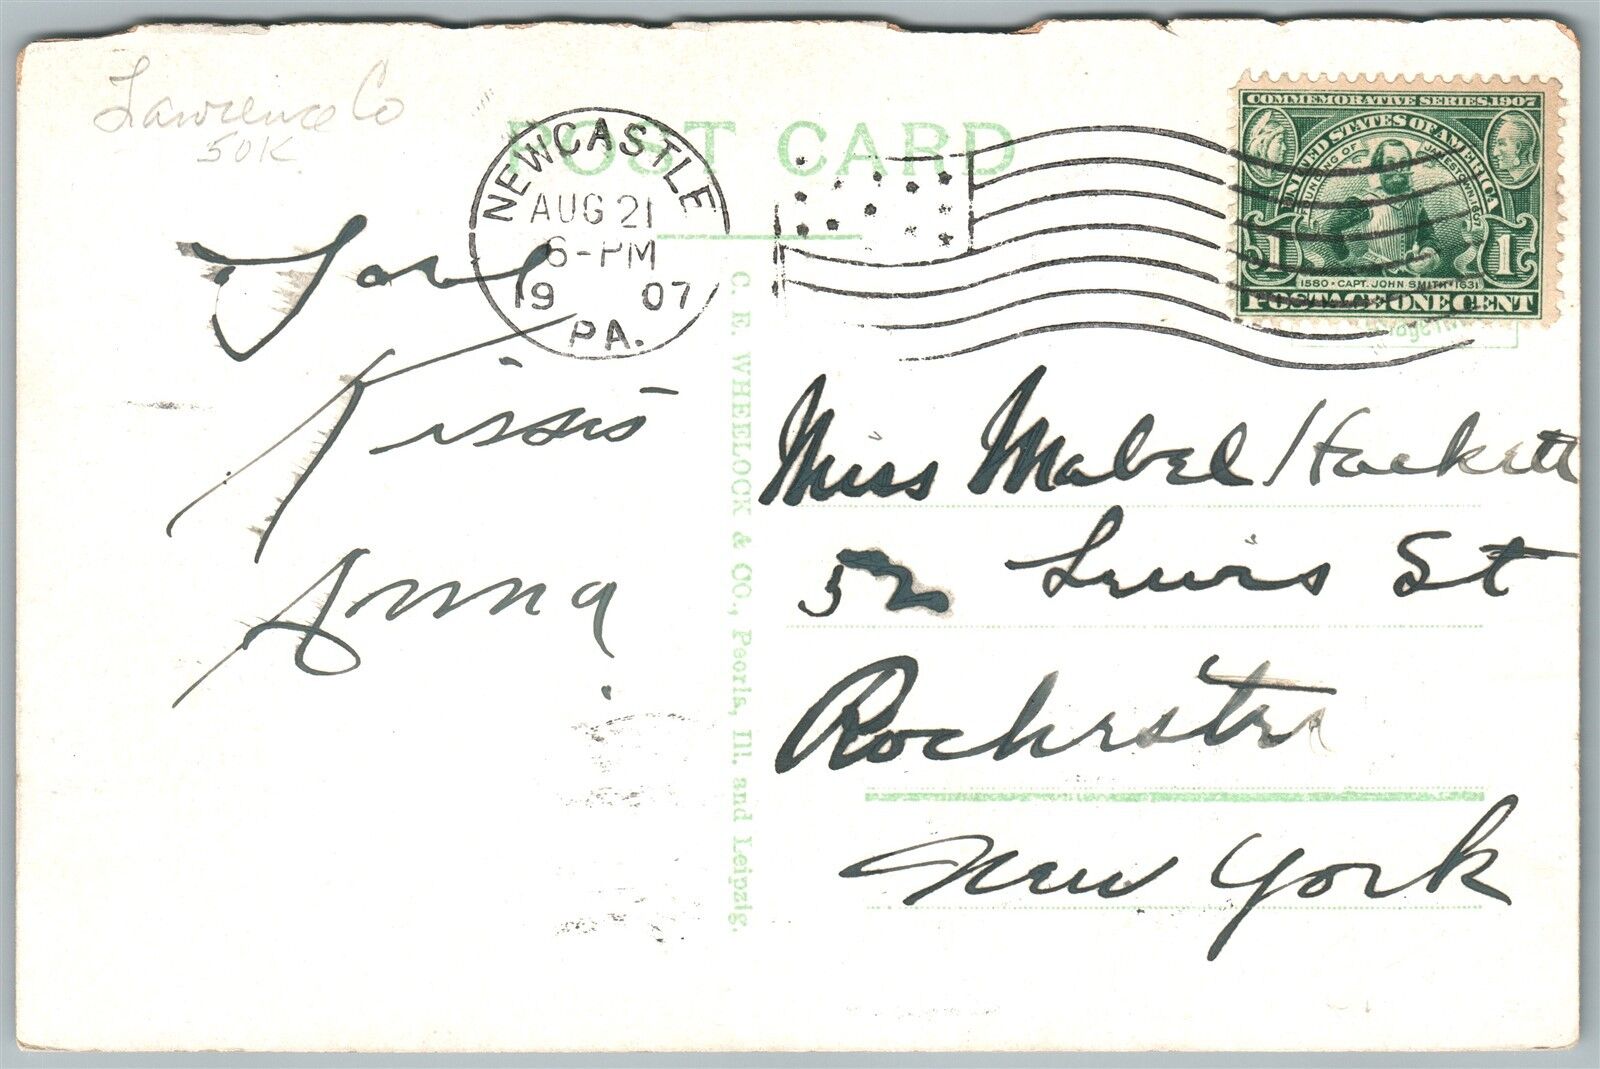 Lawrence Co
50K
POST CARD
NEWCASTLE
AUG 21
6-PM
19 07
PA.
COMMEMORATIVE SERIES, 1907
UNITED STATES OF AMERICA
FOUNDING OF JAMESTOWN, 1607
1 1
1580 • CAPT. JOHN SMITH • 1631
POSTAGE ONE CENT
Kissis
Anna.
C. E. WHEELOCK & CO., Peoria, Ill. and Leipzig.
Miss Mabel Hackett
52 Lewis St
Rochester
New York